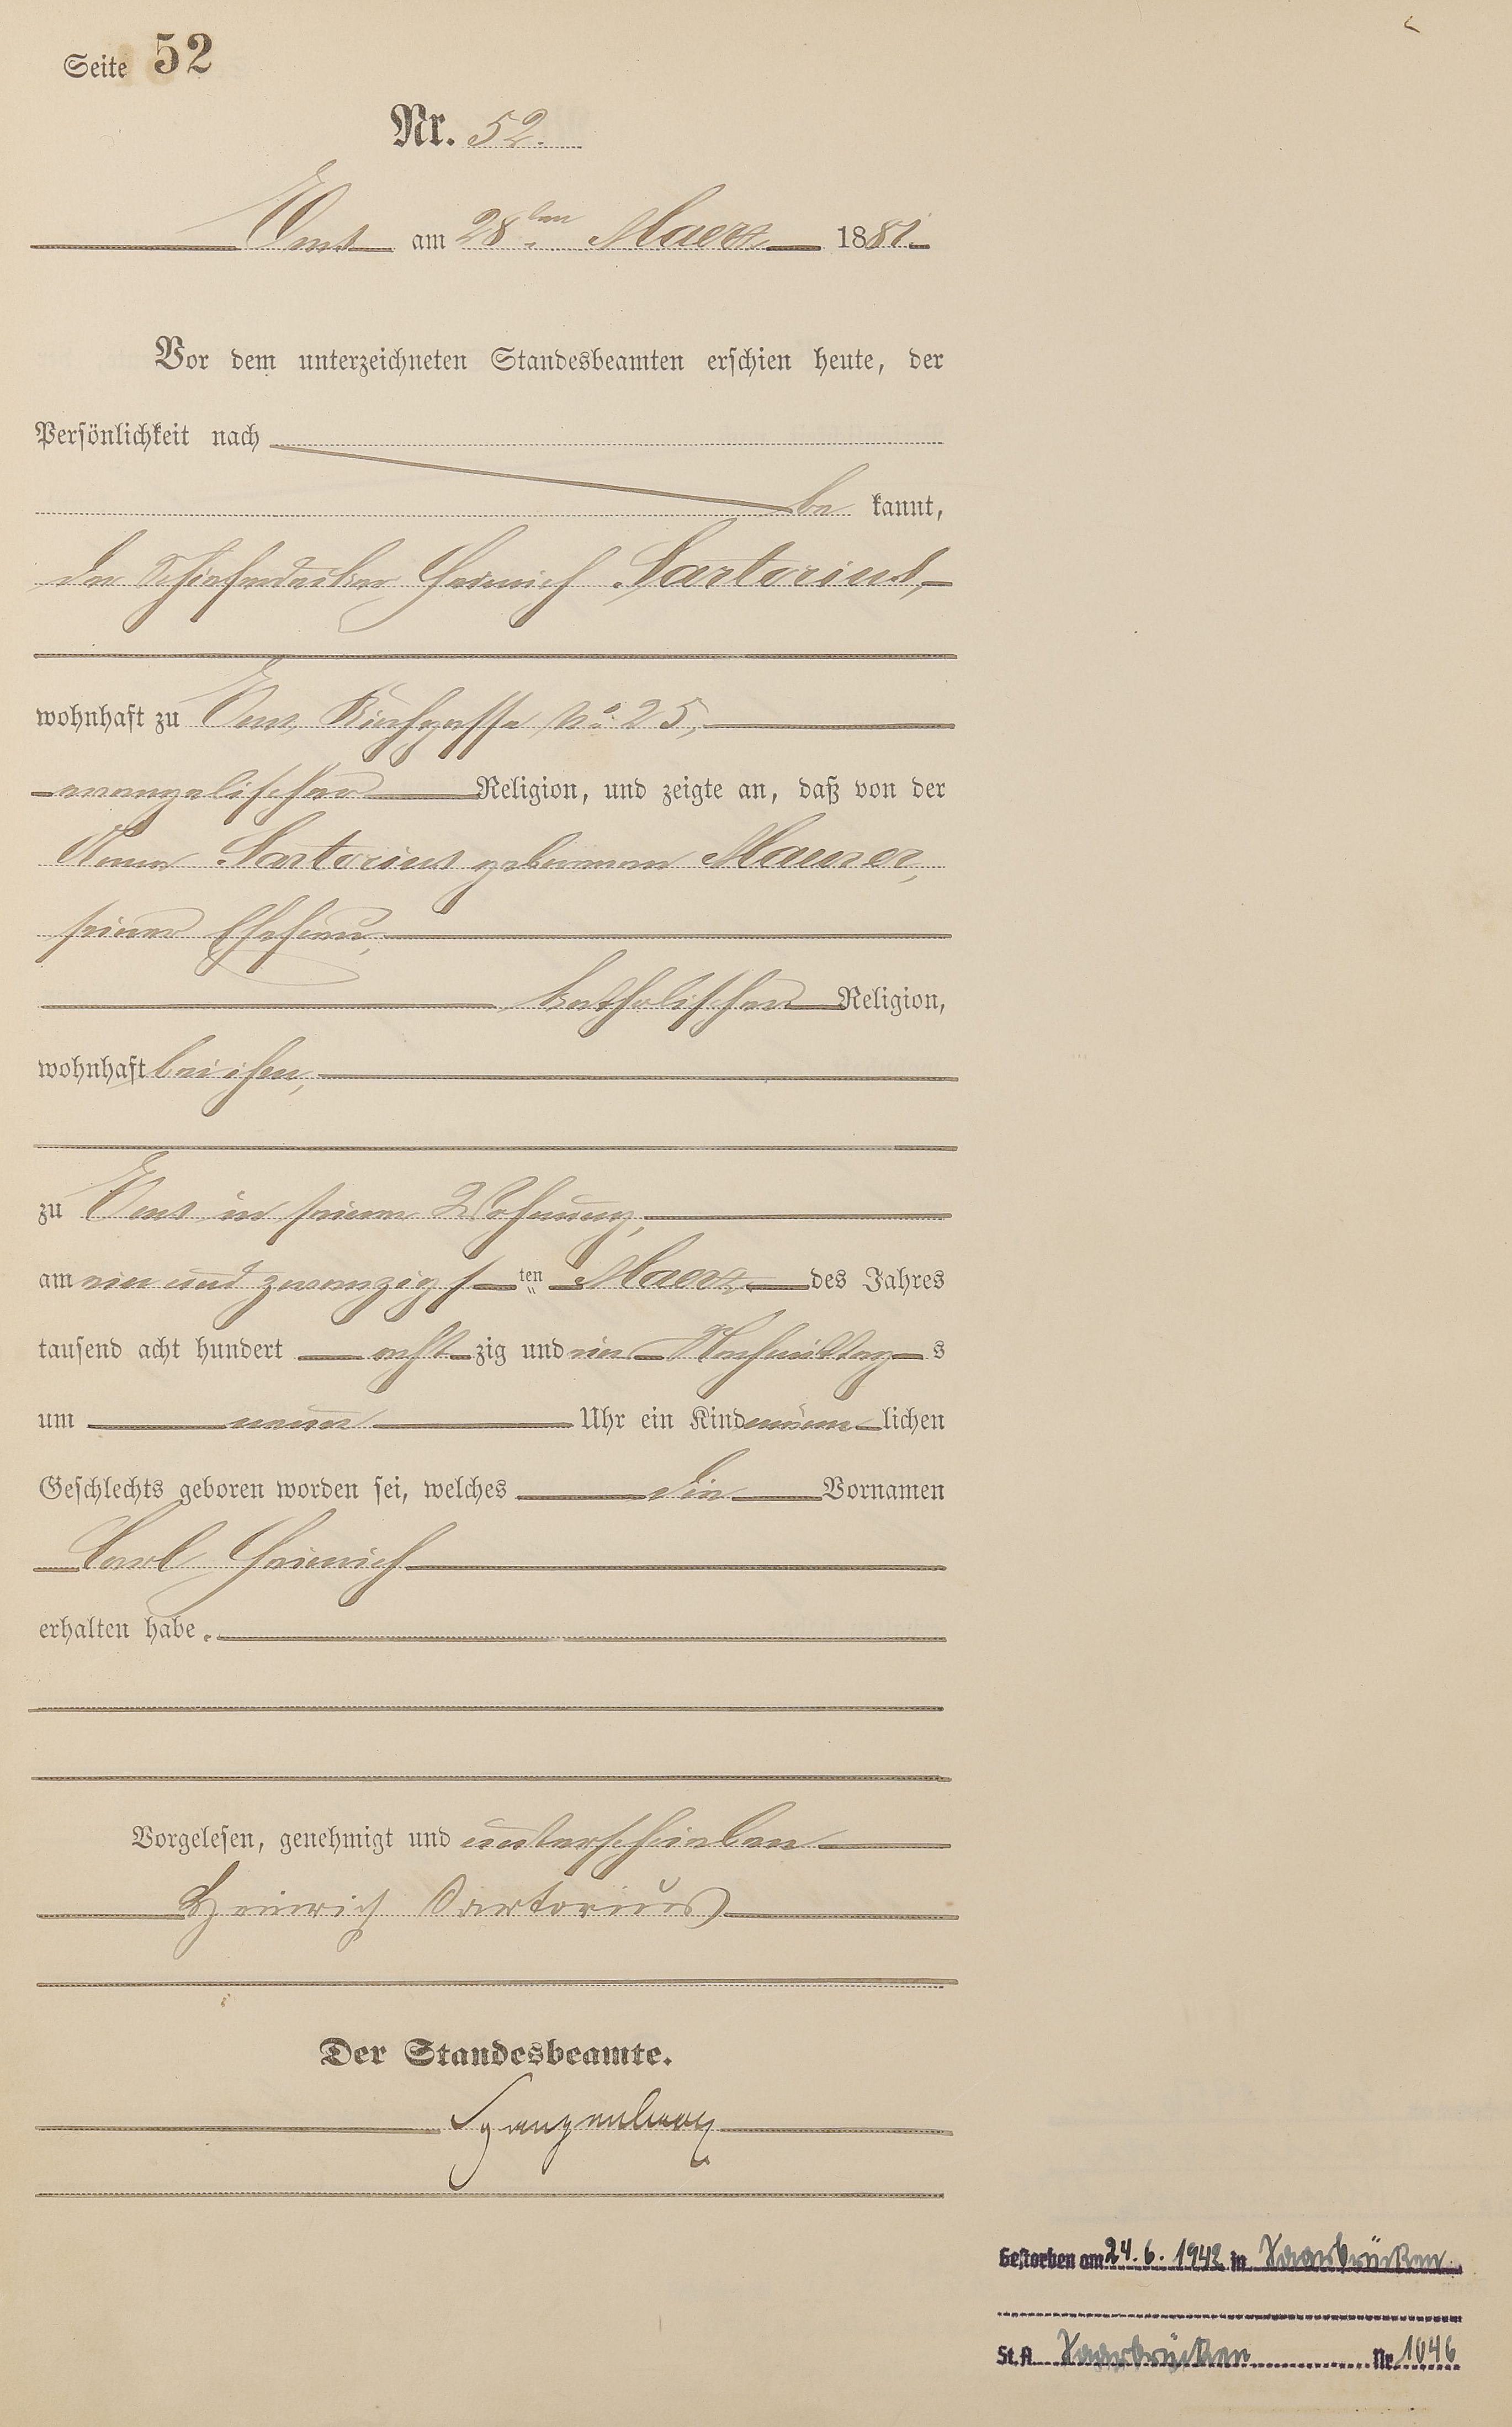 Seite 52
Nr. 52.
Ems am 28ten Maerz 1881.
Vor dem unterzeichneten Standesbeamten erschien heute, der
Persönlichkeit nach
be kannt,
der Schieferdecker Heinrich Sartorius,
wohnhaft zu Ems, Kirchgasse No. 25,
evangelischer Religion, und zeigte an, daß von der
Sartorius geborenen Maurer,
seiner Ehefrau,
katholischer Religion,
wohnhaft bei ihm,
zu Ems in seiner Wohnung,
am ein und zwanzigsten Maerz des Jahres
tausend acht hundert acht zig und ein Nachmittags
um neun Uhr ein Kind männlichen
Geschlechts geboren worden sei, welches die Vornamen
Carl Heinrich
erhalten habe.
Vorgelesen, genehmigt und unterschrieben
Heinrich Sartorius
Der Standesbeamte.
Spangenberg
Gestorben am 24.6.1942 in Saarbrücken
St.A. Saarbrücken Nr. 1046